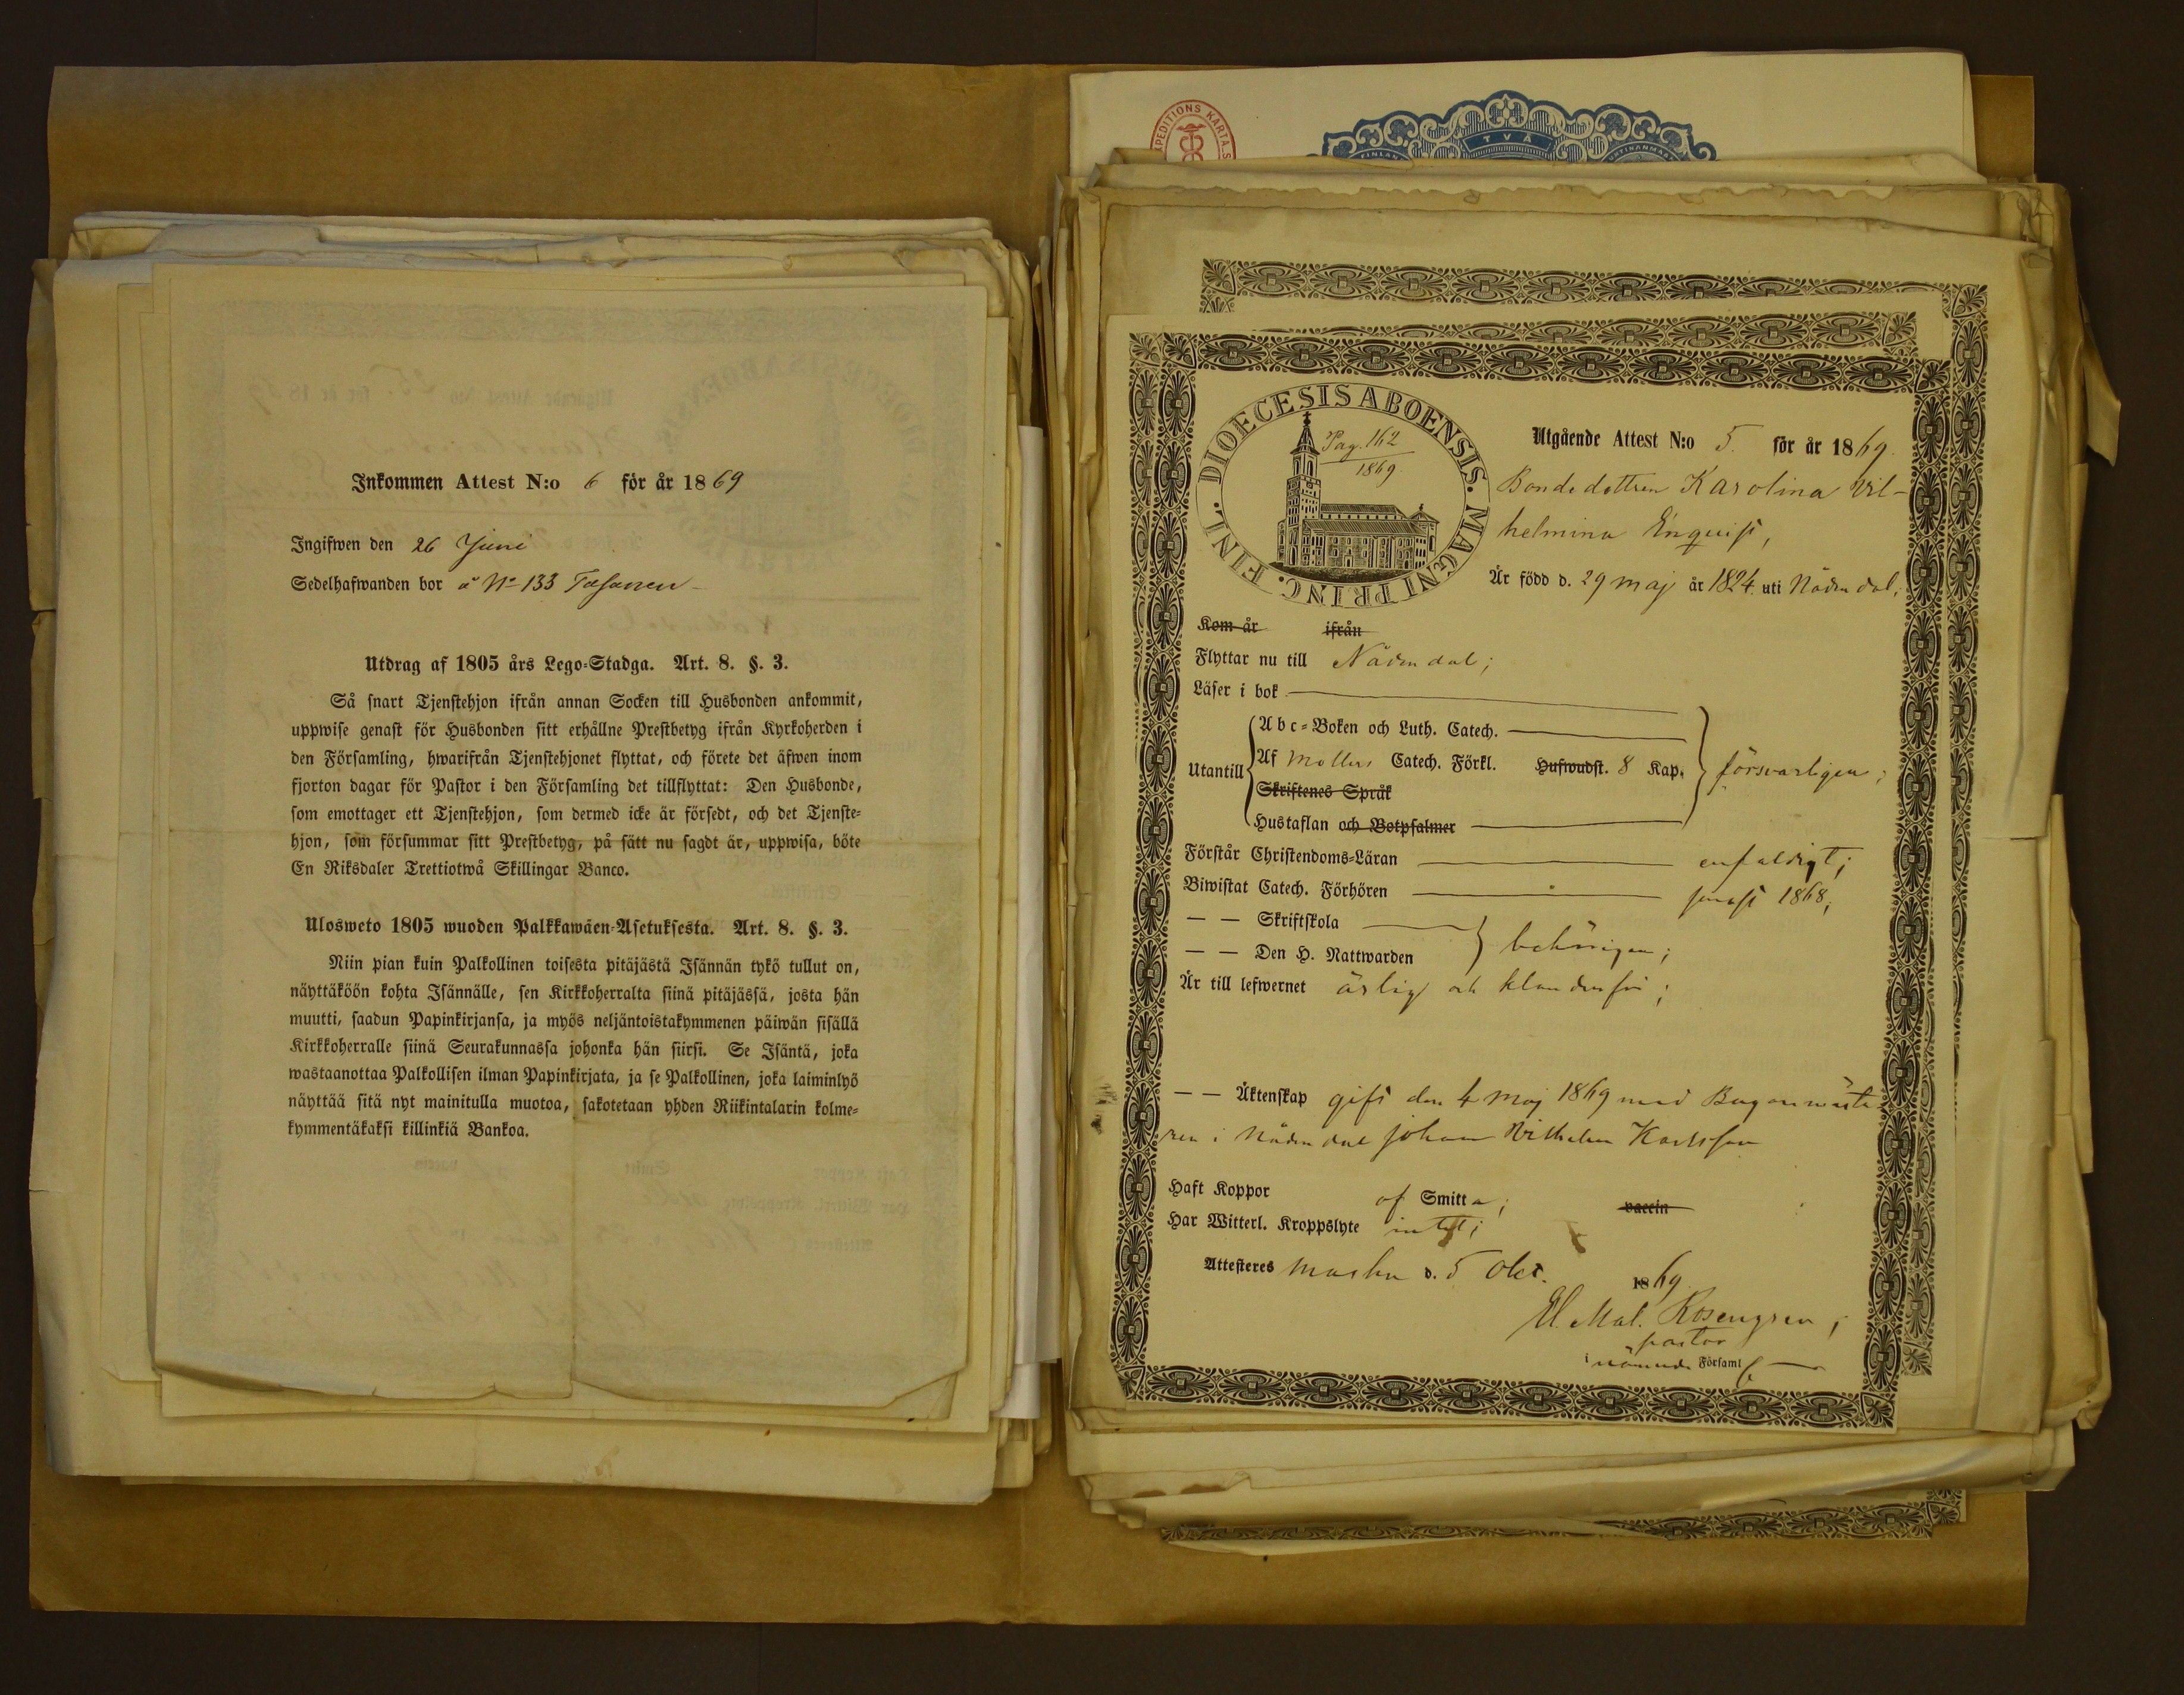 Inkommen Attest N:o 6 för år 1869
Ingifwen den 26 Juni
Sedelhafwanden bor å No 133
Utdrag af 1805 års Lego-Stadga. Art. 8. §. 3.
Så snart Tjenstehjon ifrån annan Socken till Husbonden ankommit,
uppwise genast för Husbonden sitt erhållne Prestbetyg ifrån Kyrkoherden i
den Församling, hwarifrån Tjenstehjonet flyttat, och förete det äfwen inom
fjorton dagar för Pastor i den Församling det tillflyttat: Den Husbonde,
som emottager ett Tjenstehjon, som dermed icke är försedt, och det Tjenste-
hjon, som försummar sitt Prestbetyg, på sätt nu sagdt är, uppwisa, böte
En Riksdaler Trettiotwå Skillingar Banco.
Ulosweto 1805 wuoden Palkkawäen-Asetuksesta. Art. 8. §. 3.
Niin pian kuin Palkollinen toisesta pitäjästä Isännän tykö tullut on,
näyttäköön kohta Isännälle, sen Kirkkoherralta siinä pitäjässä, josta hän
muutti, saadun Papinkirjansa, ja myös neljäntoistakymmenen päiwän sisällä
Kirkkoherralle siinä Seurakunnassa johonka hän siirsi. Se Isäntä, joka
wastaanottaa Palkollisen ilman Papinkirjata, ja se Palkollinen, joka laiminlyö
näyttää sitä nyt mainitulla muotoa, sakotetaan yhden Riikintalarin kolme-
kymmentäkaksi killinkiä Bankoa.
EXPEDITIONS KARTA.S
TVÅ
FINLAN
DIOECESIS ABOENSIS. MAGNI PRINC. FINL.
Pag. 162
1869.
Utgående Attest N:o 5. för år 1869.
Bondedottren Karolina Vil-
helmina Enquist,
Är född d. 29 maj år 1824. uti Nådendal;
Kom år ifrån
Flyttar nu till Nådendal;
Läser i bok
Utantill
Abc-Boken och Luth. Catech.
Af Möllers Catech. Förkl. Hufwudst. 8 Kap.
Skriftenes Språk
Hustaflan och Botpsalmer
försvarligen;
Förstår Christendoms-Läran enfaldigt;
Biwistat Catech. Förhören senast 1868;
— — Skriftskola
— — Den H. Nattwarden
behörigen;
Är till lefwernet ärlig och klanderfri;
— — Äktenskap gift den 4 maj 1869 med
ren i Nådendal Johan Wilhelm Karlsson
Haft Koppor af Smitta; vaccin
Har Witterl. Kroppslyte intet;
Attesteres Masku d. 5 Okt. 1869
Mat. Rosengren;
pastor
i nämnde Församl